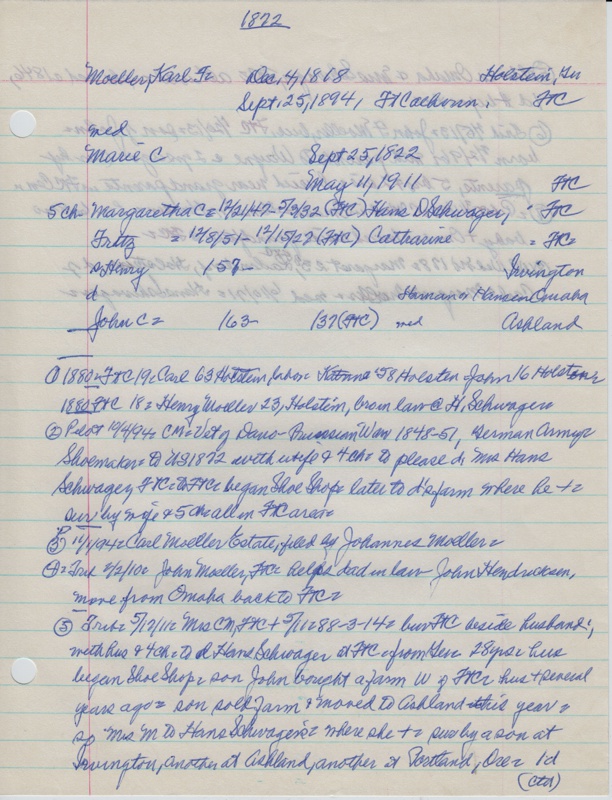 1872
Moeller, Karl F= Dec, 4, 1818 Holstein, Ger
Sept. 25, 1894, Ft Calhoun, FTC
med
Marie C Sept 25, 1822
May 11, 1911 FTC
5 ch- Margaretha C= 12/21/47- 5/3/32 (FTC) Hans D Schwager, FTC
Fritz = 12/8/51- 12/15/27 (FTC) Catharine = FTC=
Henry 157- Irvington
d Haman or Hansen Omaha
John C= 163- 137 (FTC) med Ashland
① 1880= FTC 19= Carl 63 Holstein, labor= 58 Holsten John 16 Holstein
1880 FTC 18= Henry Moeller 23, Holstein, bro in law @ H, Schwager=
② Pilot 10/4/94= CM= Vet of Dano-Prussian War 1848-51, German Army=
Shoemaker= to US 1872 with wife & 4 ch= to please d, Mrs Hans
Schwager, FTC= to FTC= began Shoe Shop= later to d's farm where he +=
sur by wife & 5 ch all in FTC area=
③ 11/1/94= Carl Moeller Estate, filed by Johannes Moeller=
④= Trib 2/2/10= John Moeller, FTC= helps dad in law John Hendricksen,
move from Omaha back to FTC=
⑤ Trib= 5/12/11= Mrs CM, FTC + 5/11= 88-3-14= bur FTC beside husband;
with hus & 4 ch= to d Hans Schwager at FTC= from Ger= 28 yrs= hus
began Shoe Shop= son John bought a farm W of FTC= hus + several
years ago= son sold farm & moved to Ashland this year=
so Mrs M to Hans Schwager's= where she += sur by a son at
Irvington, another at Ashland, another at Portland, Ore= 1d
(ctd)